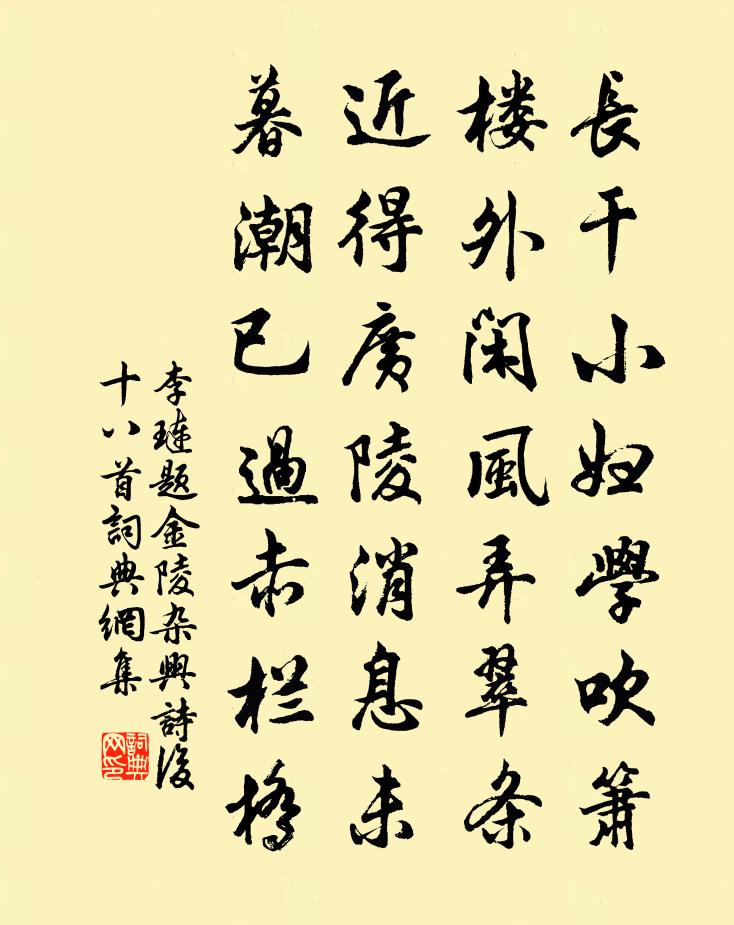 长干小妇學吹箫
楼外闲風弄翠条
近得廣陵消息未
暮潮已過赤栏橋
李琏题金陵杂興詩後
十八首詞典網集
詞典
网印